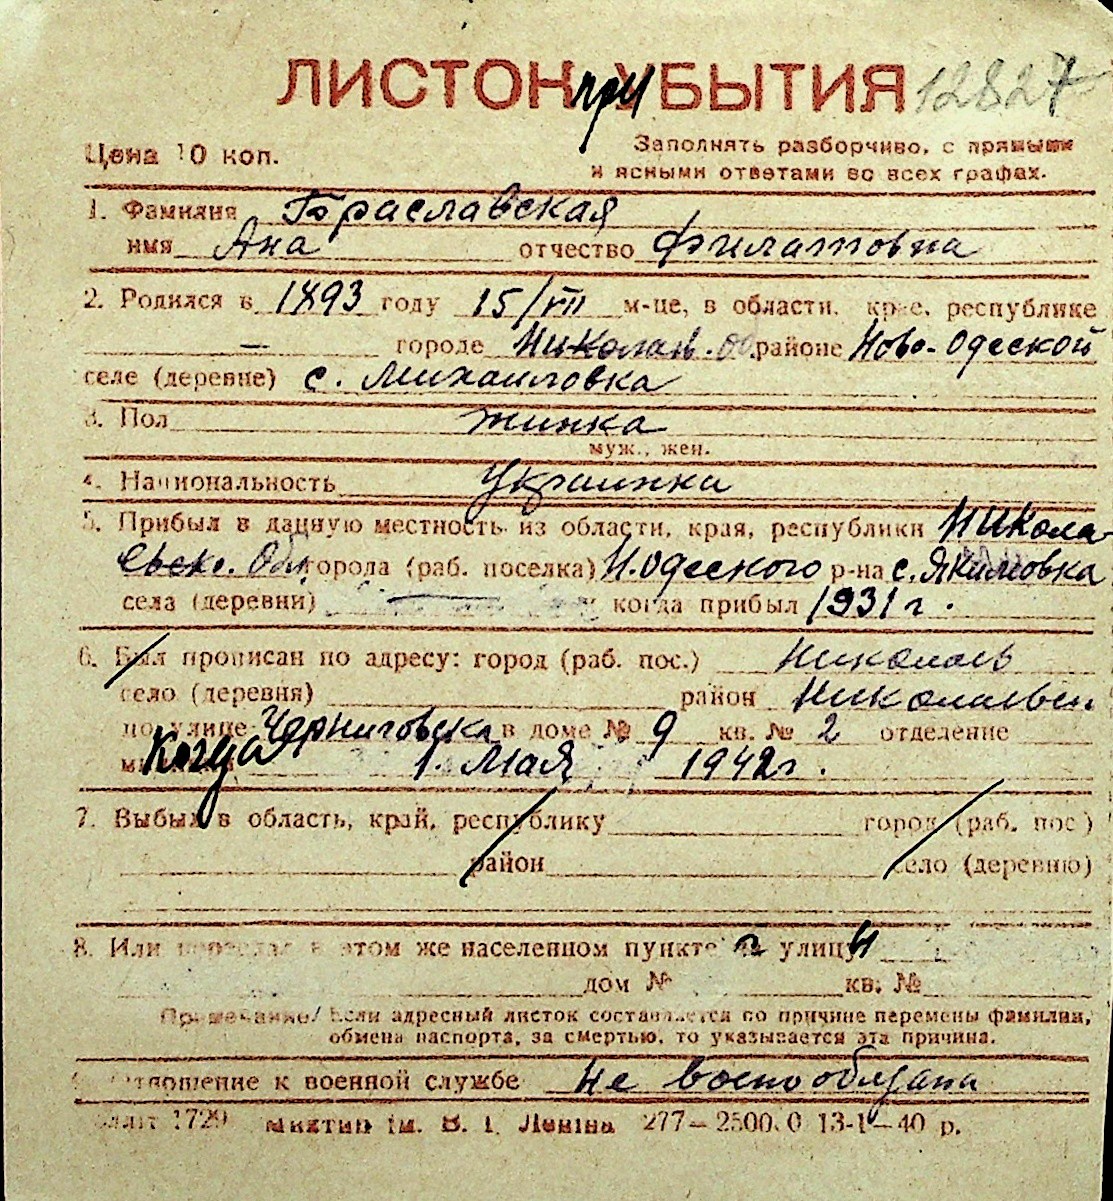 ЛИСТОК при УБЫТИЯ 12827
Цена 10 коп.
Заполнять разборчиво, с прямыми
и ясными ответами во всех графах.
1. Фамилия Браславская
имя Ана отчество Филатовна
2. Родился в 1893 году 15/VII м-це, в области, крае, республике
— городе Николаев. Об. районе Ново-Одеской
селе (деревне) с. Михаиловка
3. Пол жинка
муж., жен.
4. Национальность Украинка
5. Прибыл в данную местность из области, края, республики Никола-
евске. Обл города (раб. поселка) Н. Одеского р-на с. Якимовка
села (деревни) — когда прибыл 1931 г.
6. Был прописан по адресу: город (раб. пос.) Николаев
село (деревня) район Николаевск
по улице Черниговска в доме № 9 кв. № 2 отделение
Когда 1. Мая 1942 г.
7. Выбыл в область, край, республику город (раб. пос.)
район село (деревню)
8. Или переехал в этом же населенном пункте с улицы
дом № кв. №
Примечание/ Если адресный листок составляется по причине перемены фамилии,
обмена паспорта, за смертью, то указывается эта причина.
Отношение к военной службе не воено обязана
1729 Миктип ім. В. І. Леніна 277—2500.0 13-1—40 р.